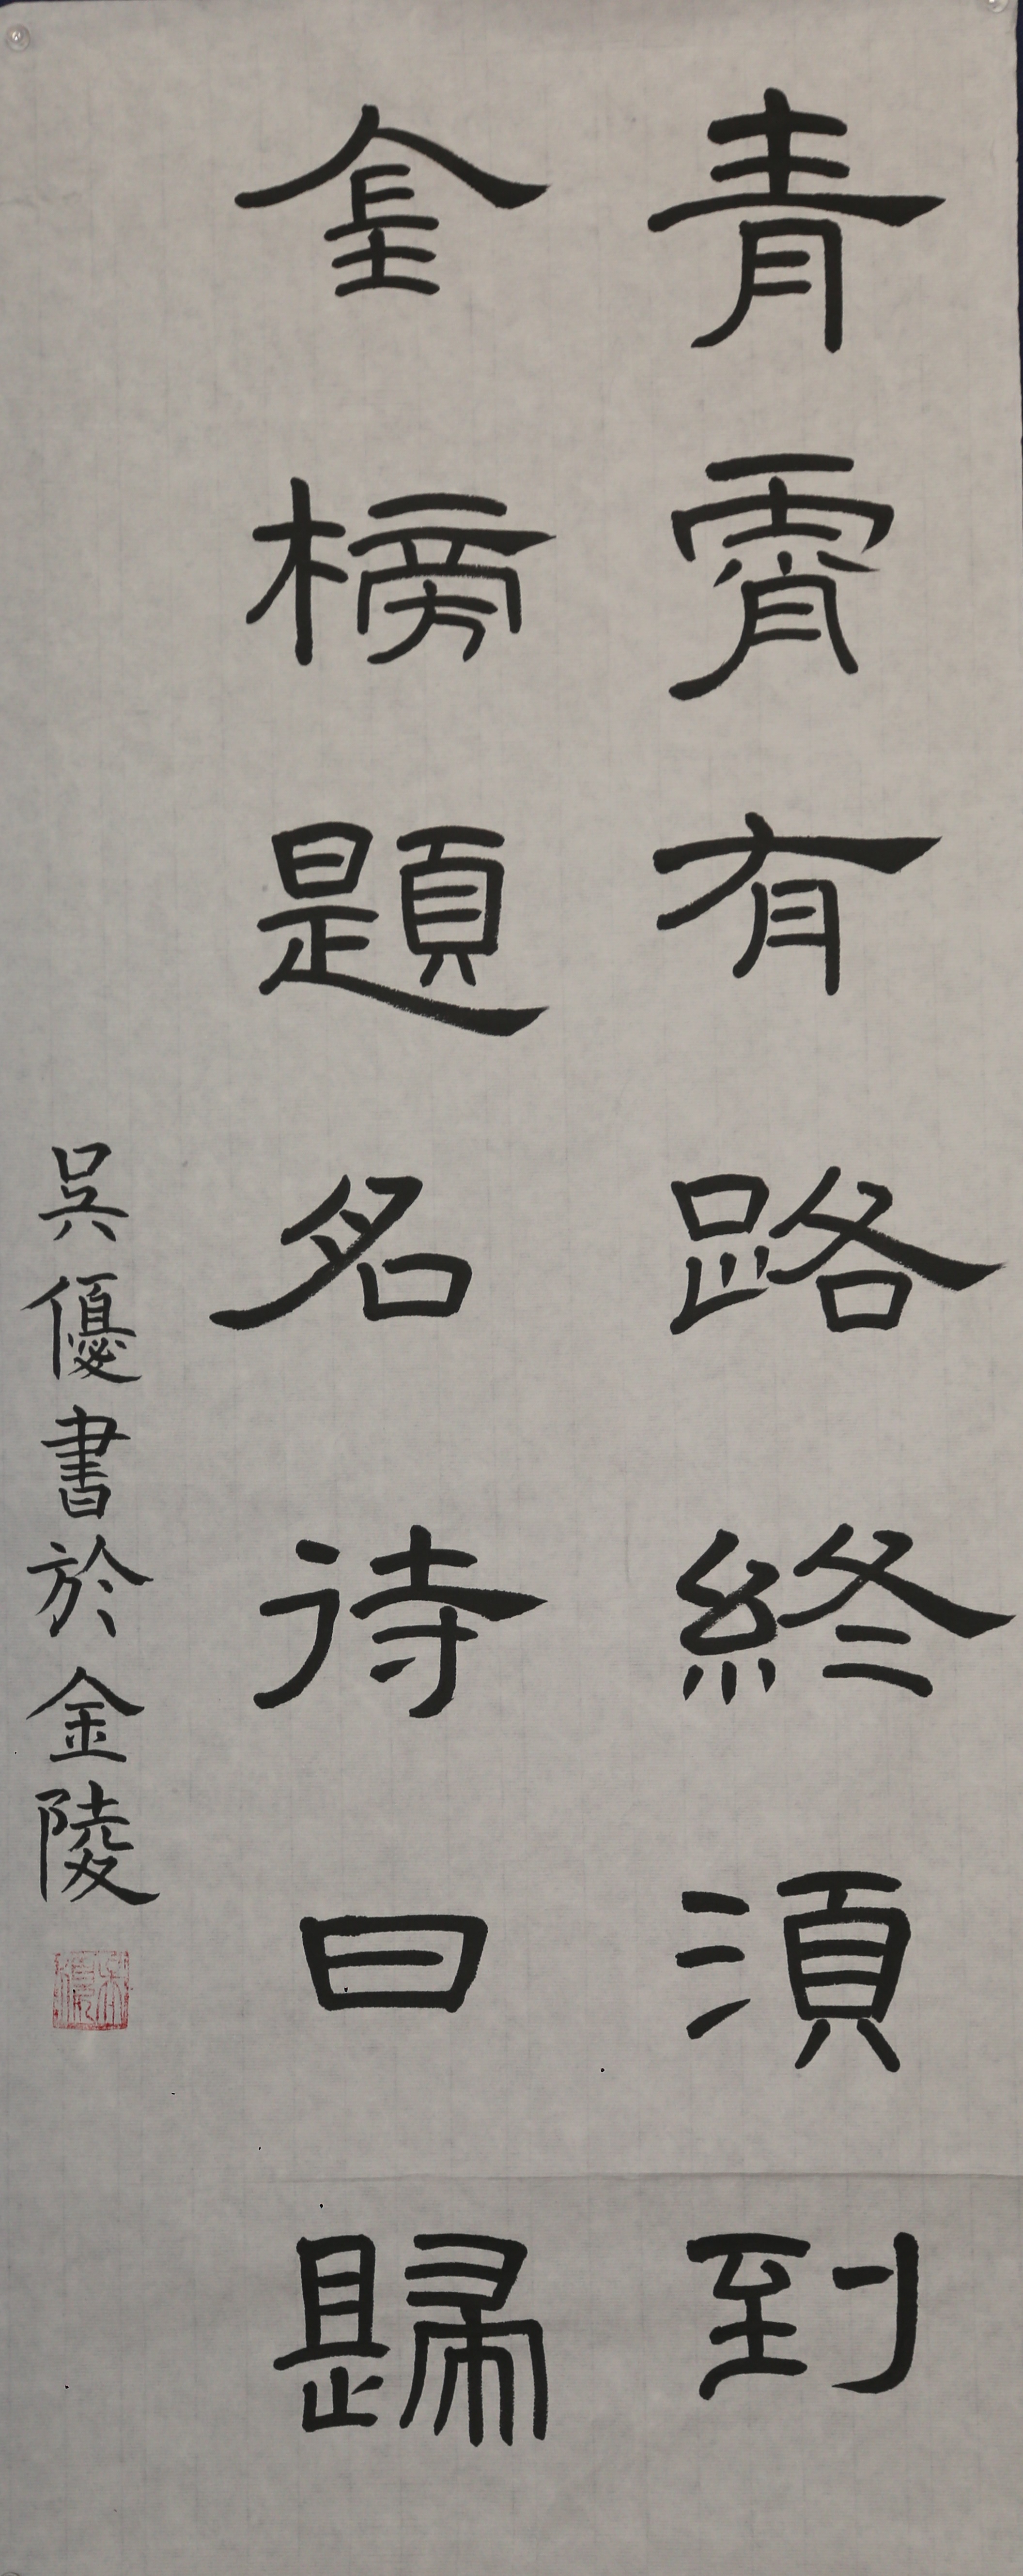 青霄有路終須到
金榜題名待日歸
吳優書於金陵